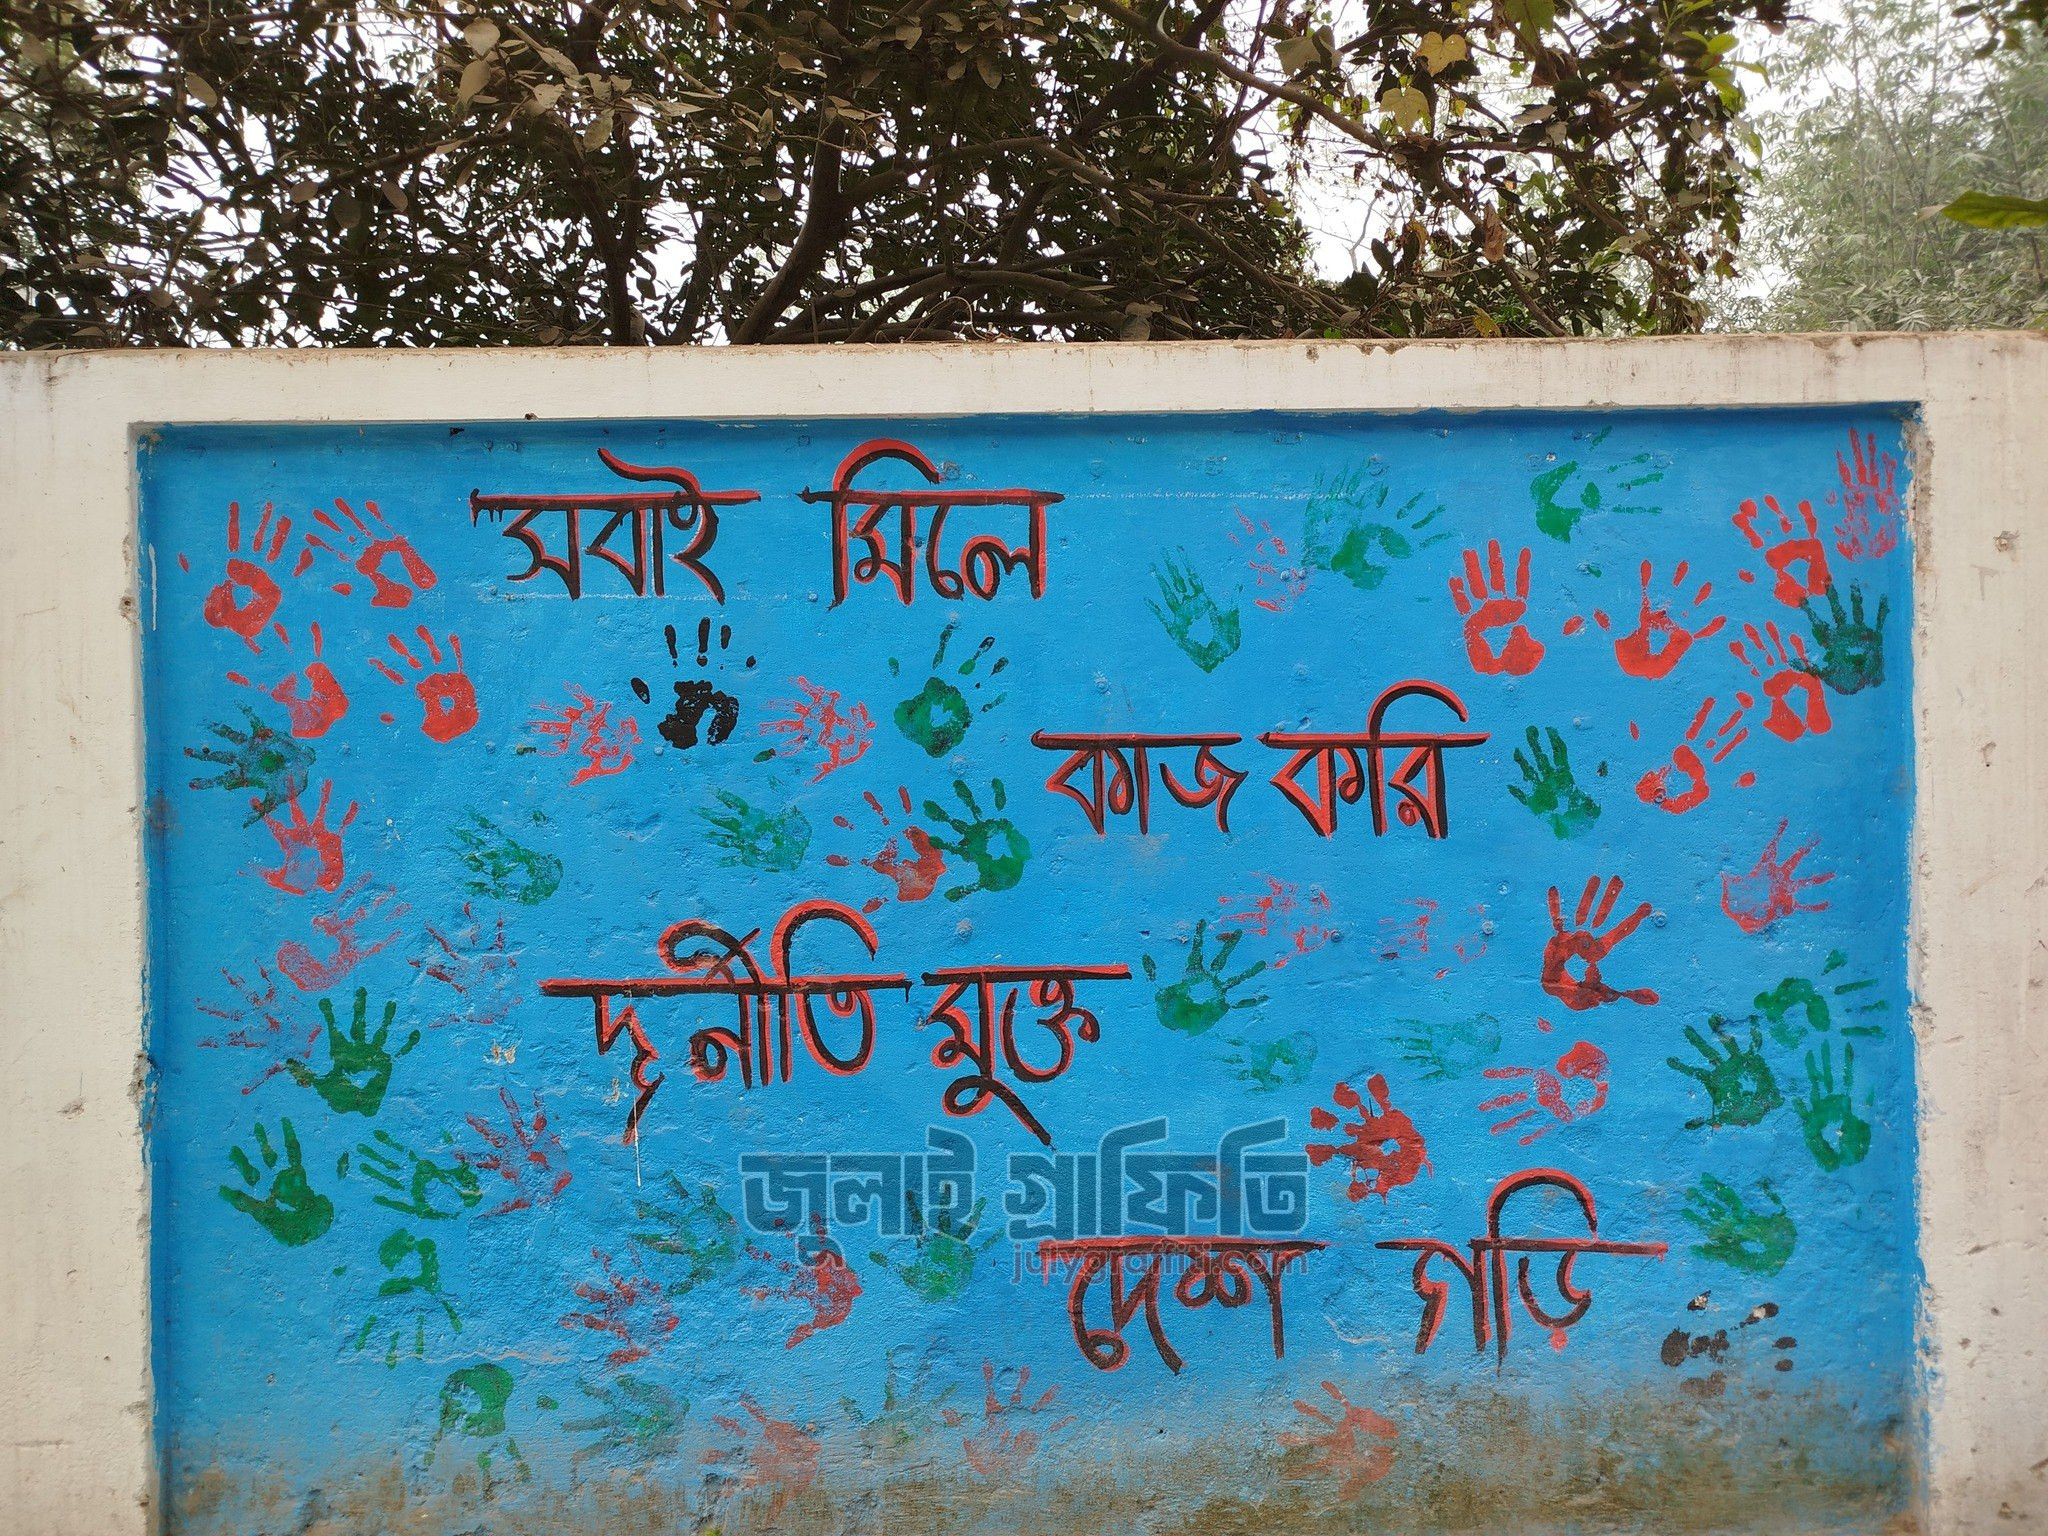 সবাই মিলে
কাজ করি
দূর্নীতি মুক্ত
জুলাই গ্রাফিতি
julygraffiti.com
দেশ গড়ি